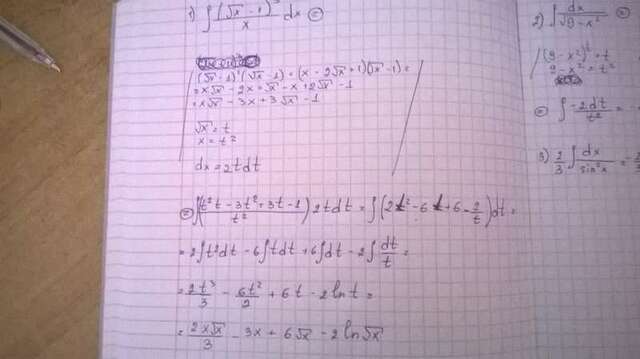 1) ∫ (√x - 1)³ / x dx =
(√x - 1)²(√x - 1) = (x - 2√x + 1)(√x - 1) =
= x√x - 2x + √x - x + 2√x - 1
= x√x - 3x + 3√x - 1
√x = t
x = t²
dx = 2t dt
= ∫ ((t²t - 3t² + 3t - 1) / t²) 2t dt = ∫ (2t² - 6t + 6 - 2/t) dt =
= 2∫t²dt - 6∫tdt + 6∫dt - 2∫ dt/t =
= 2t³/3 - 6t²/2 + 6t - 2 ln t =
= 2x√x/3 - 3x + 6√x - 2 ln √x
2) ∫ dx / √9 - x²
9 - x² = t²
= ∫ -2dt / t² = -
3) 2/3 ∫ dx / sin²x =